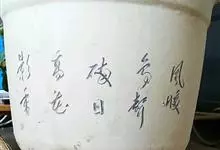 风暖
鸟聲
碎日
高花
影重